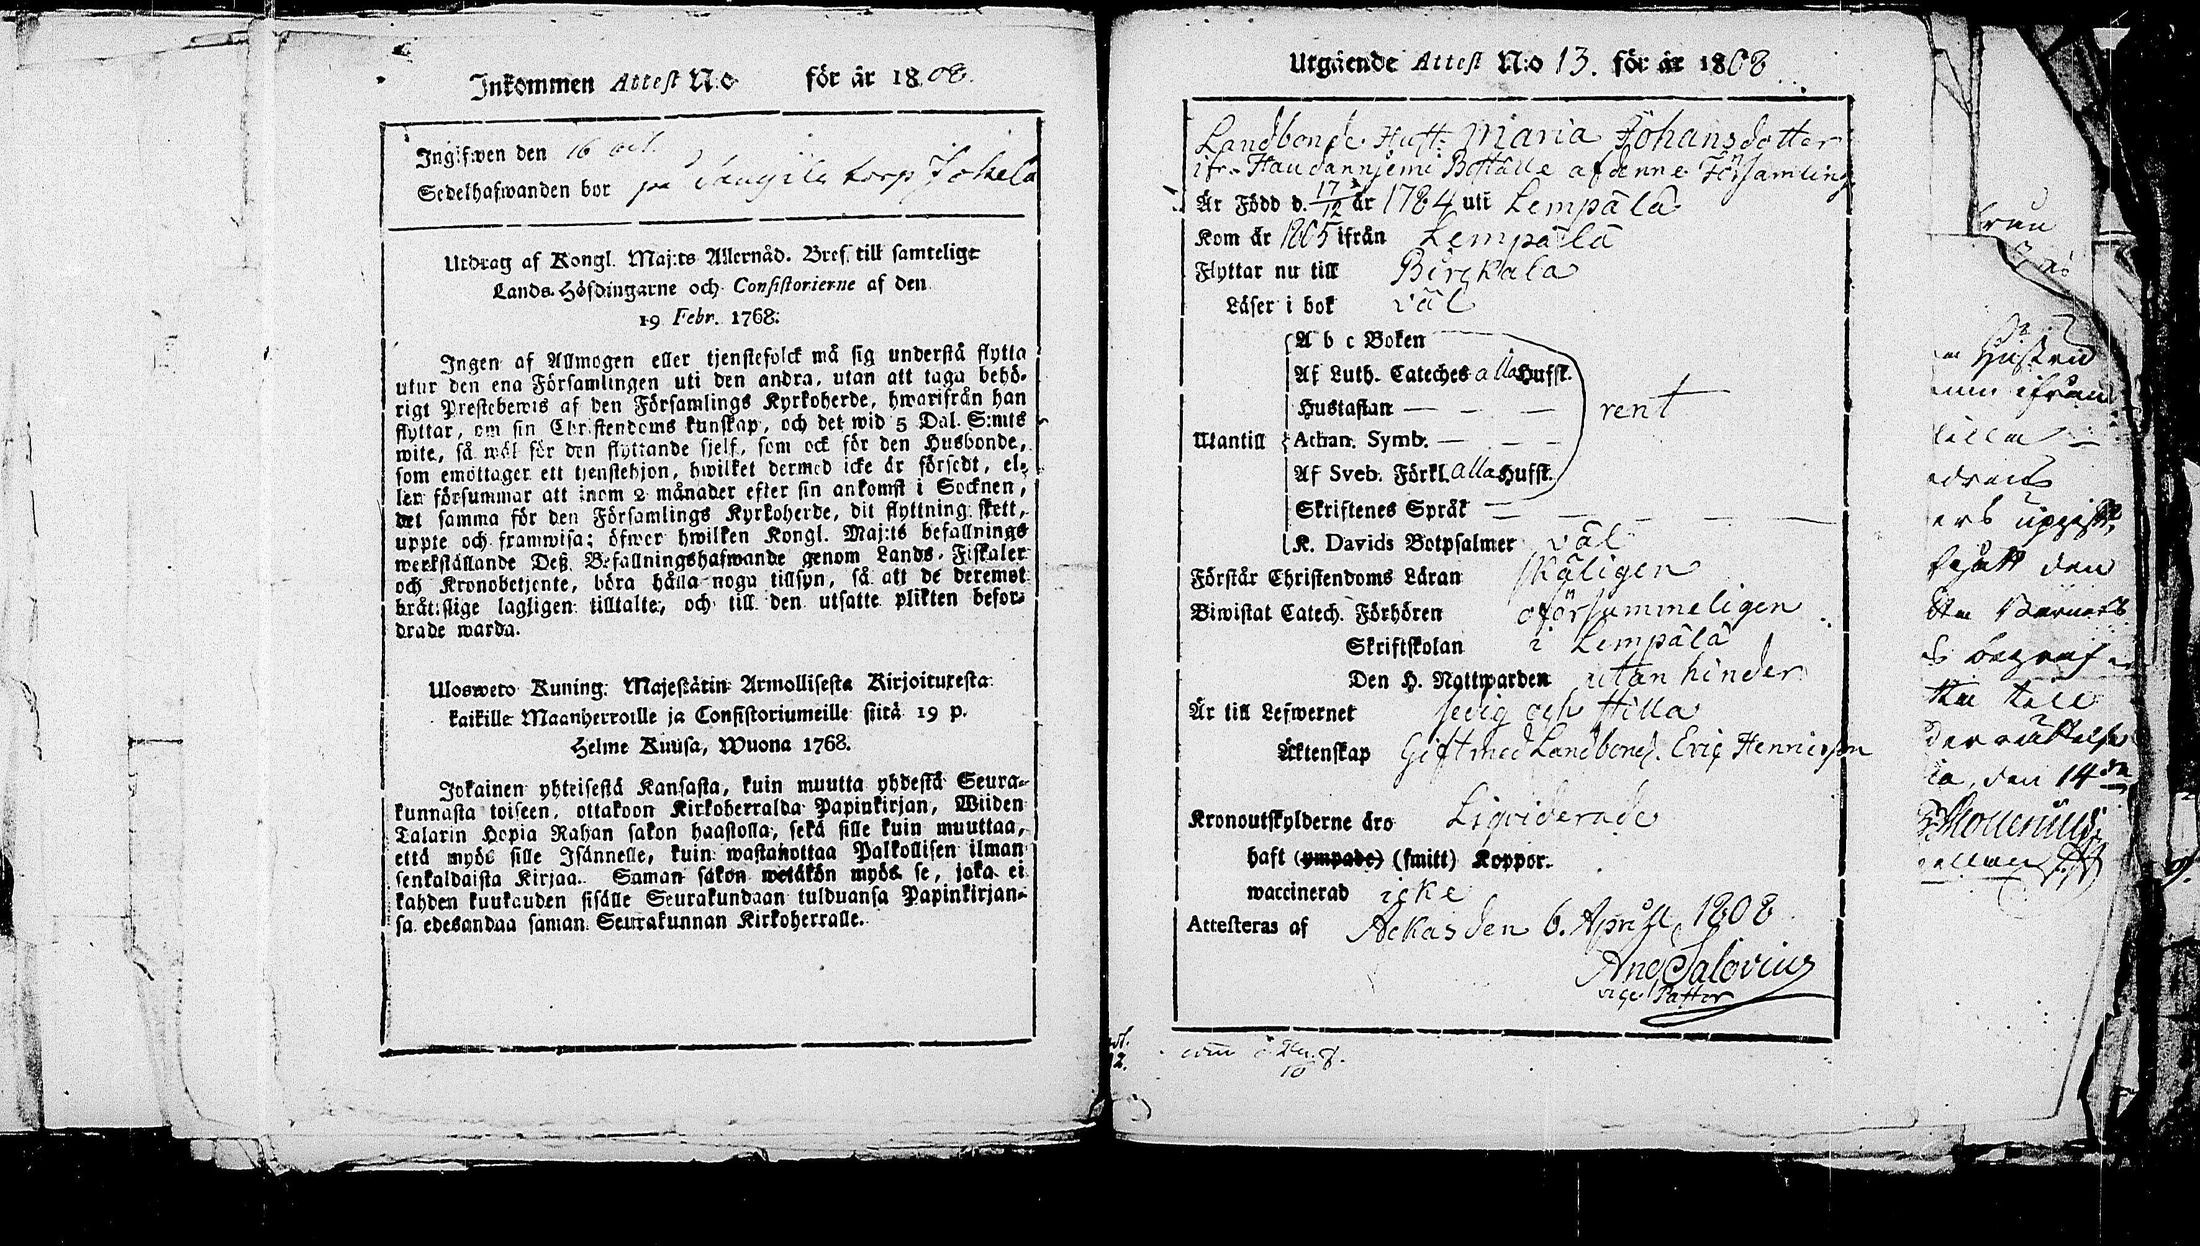 Inkommen Attest N:o för år 1808.
Ingifwen den 16 oct.
Sedelhafwanden bor på torp Jokela
Utdrag af Kongl. Maj:ts Allernåd. Bref till samtelige
Lands-Höfdingarne och Consistorierne af den
19 Febr. 1768.
Ingen af Allmogen eller tjenstefolck må sig understå flytta
utur den ena Församlingen uti den andra, utan att taga behö-
rigt Prestebewis af den Församlings Kyrkoherde, hwarifrån han
flyttar, om sin Christendoms kunskap, och det wid 5 Dal. S:mts
wite, så wäl för den flyttande sjelf, som ock för den Husbonde,
som emottager ett tjenstehjon, hwilket dermed icke är försedt, el-
ler försummar att inom 2 månader efter sin ankomst i Socknen,
det samma för den Församlings Kyrkoherde, dit flyttning skett,
uppte och framwisa; öfwer hwilken Kongl. Maj:ts befallnings
werkställande Deß Befallningshafwande genom Lands-Fiskaler
och Kronobetjente, böra hålla noga tillsyn, så att de deremot
bråtslige lagligen tilltalte, och till den utsatte plikten befor-
drade warda.
Ulosweto Kuning: Majestätin Armollisesta Kirjoituxesta
kaikille Maanherroille ja Consistoriumeille siitä 19 p.
Helme Kuusa, Wuona 1768.
Jokainen yhteisestä Kansasta, kuin muutta yhdestä Seura-
kunnasta toiseen, ottakoon Kirkoherralda Papinkirjan, Wiiden
Talarin Hopia Rahan sakon haastolla, sekä sille kuin muuttaa,
että myös sille Isännelle, kuin wastanottaa Palkollisen ilman
senkaldaista Kirjaa. Saman sakon wetäkön myös se, joka ei
kahden kuukauden sisälle Seurakundaan tulduansa Papinkirjan-
sa edesandaa saman Seurakunnan Kirkoherralle.
Utgående Attest N:o 13. för år 1808
Landbonde Hust. Maria Johansdotter
ifr. Haudannjemi Boställe af denne Församling
Är Född d. 17/12 år 1784 uti Lempälä
Kom år 1805 ifrån Lempälä
Flyttar nu till Birckala
Läser i bok väl
A b c Boken
Af Luth. Cateches alla Hufst.
Hustaflan — — — rent
Utantill Athan. Symb. — — —
Af Sveb. Förkl. alla Hufst.
Skriftenes Språk — — — —
K. Davids Botpsalmer väl
Förstår Christendoms Läran skäligen
Biwistat Catech. Förhören oförsummeligen
Skriftskolan i Lempälä
Den H. Nattwarden utan hinder
Är till Lefwernet sedig och stilla
Äktenskap Gift med Landbond. Eric Henricsson
Kronoutskylderne äro Liqviderade
haft (ympade) (smitt) Koppor.
waccinerad icke
Attesteras af Ackas den 6. April 1808
And Salovius
vice Pastor
Hustru
ifrån
den
till
den 14de